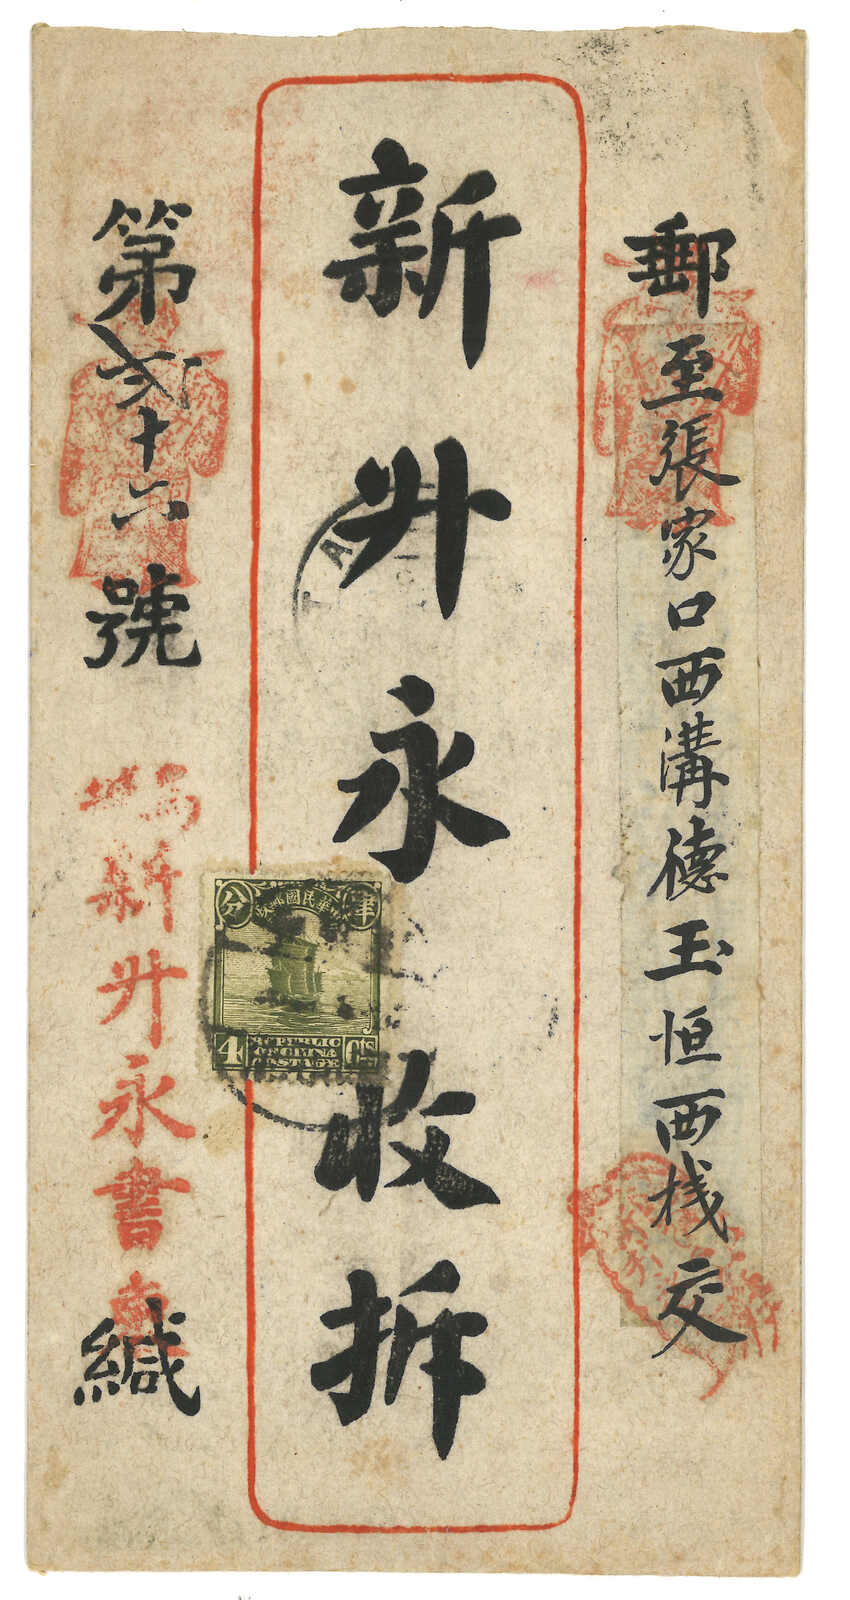 郵至張家口西溝德玉恒西栈交
新升永收拆
第弍十六號
新升永書柬
緘
分
半
中華民國郵政
4
Cts
REPUBLIC
OF CHINA
POSTAGE
TA